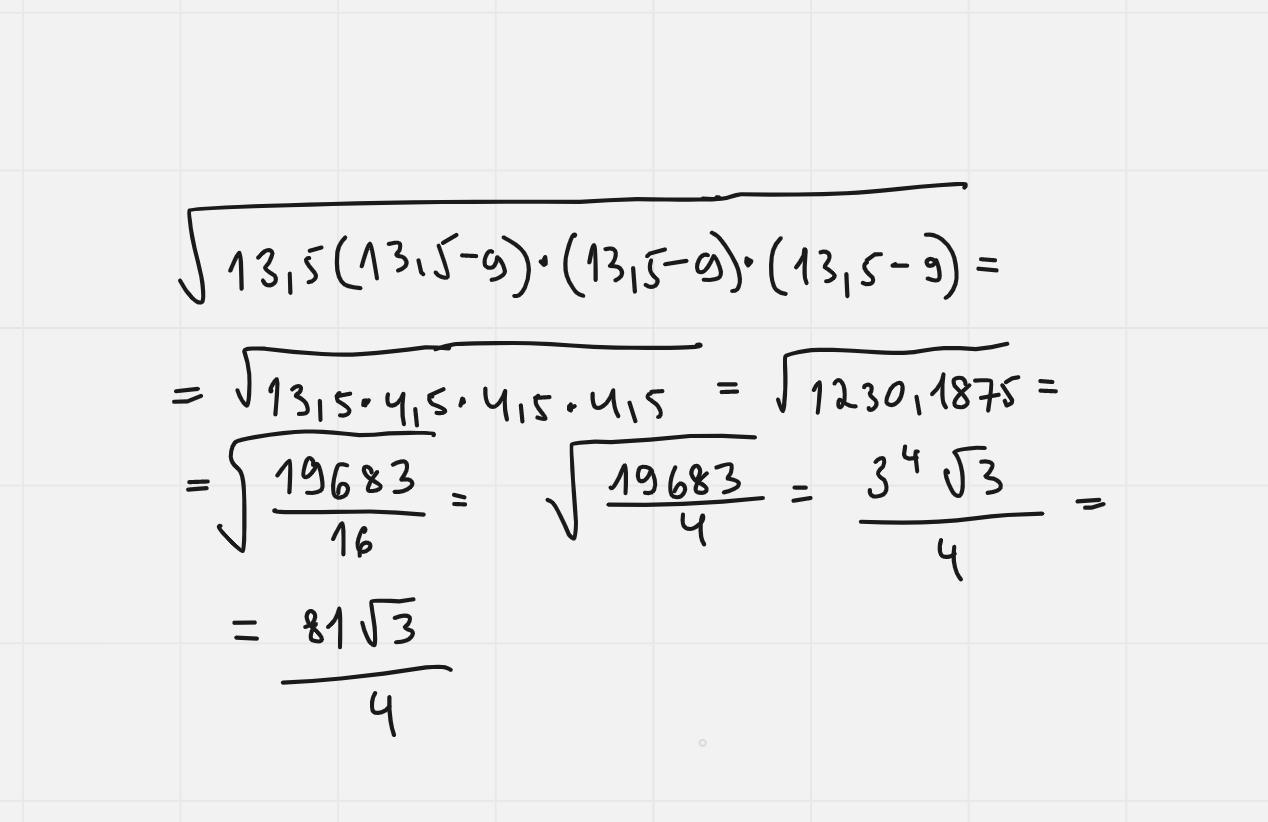 √13,5(13,5-9)·(13,5-9)·(13,5-9) =
= √13,5·4,5·4,5·4,5 = √1230,1875 =
= √(19683/16) = √(19683/4) = 3⁴√3/4 =
= 81√3/4